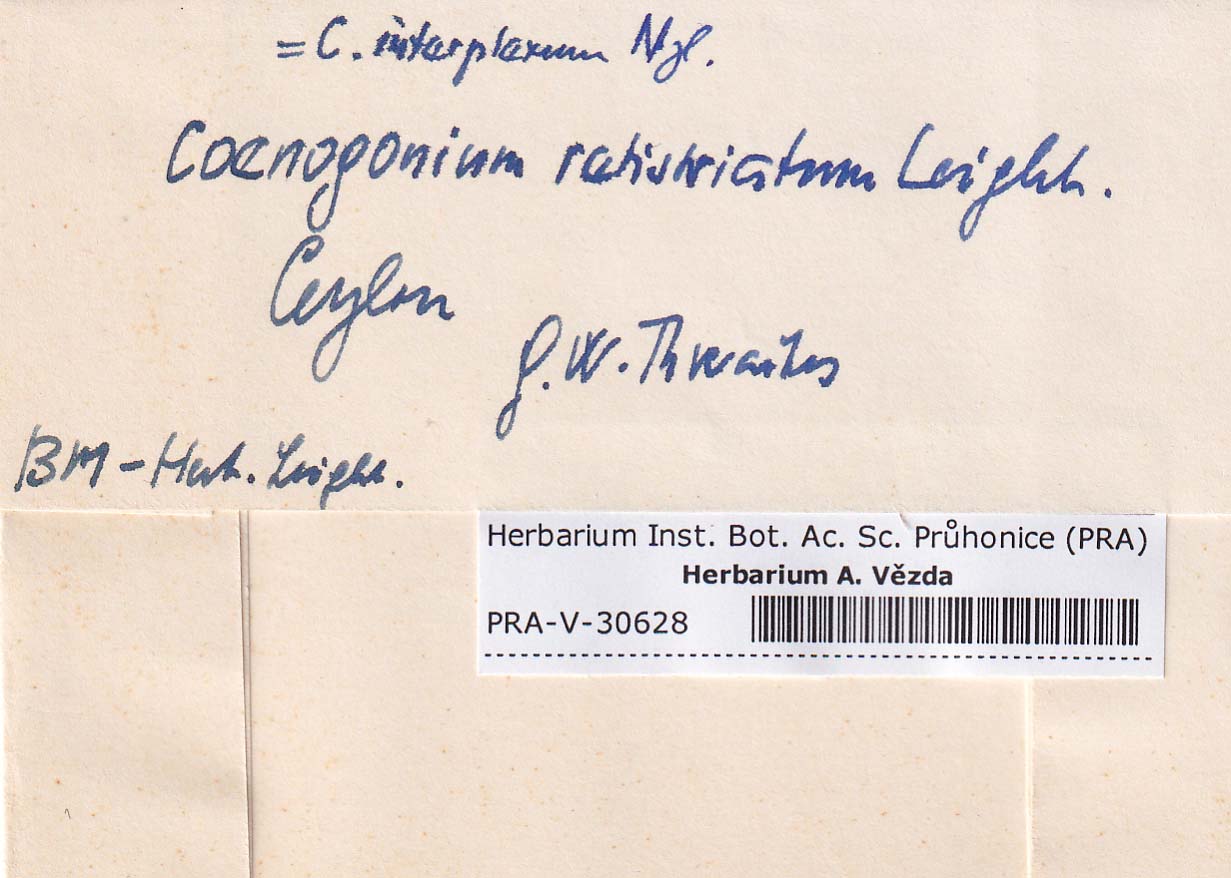 = C. interplexum Nyl.
Coenogonium retistriatum Leight.
Ceylon
G. W. Thwaites
BM - Herb. Leight.
Herbarium Inst. Bot. Ac. Sc. Průhonice (PRA)
Herbarium A. Vězda
PRA-V-30628